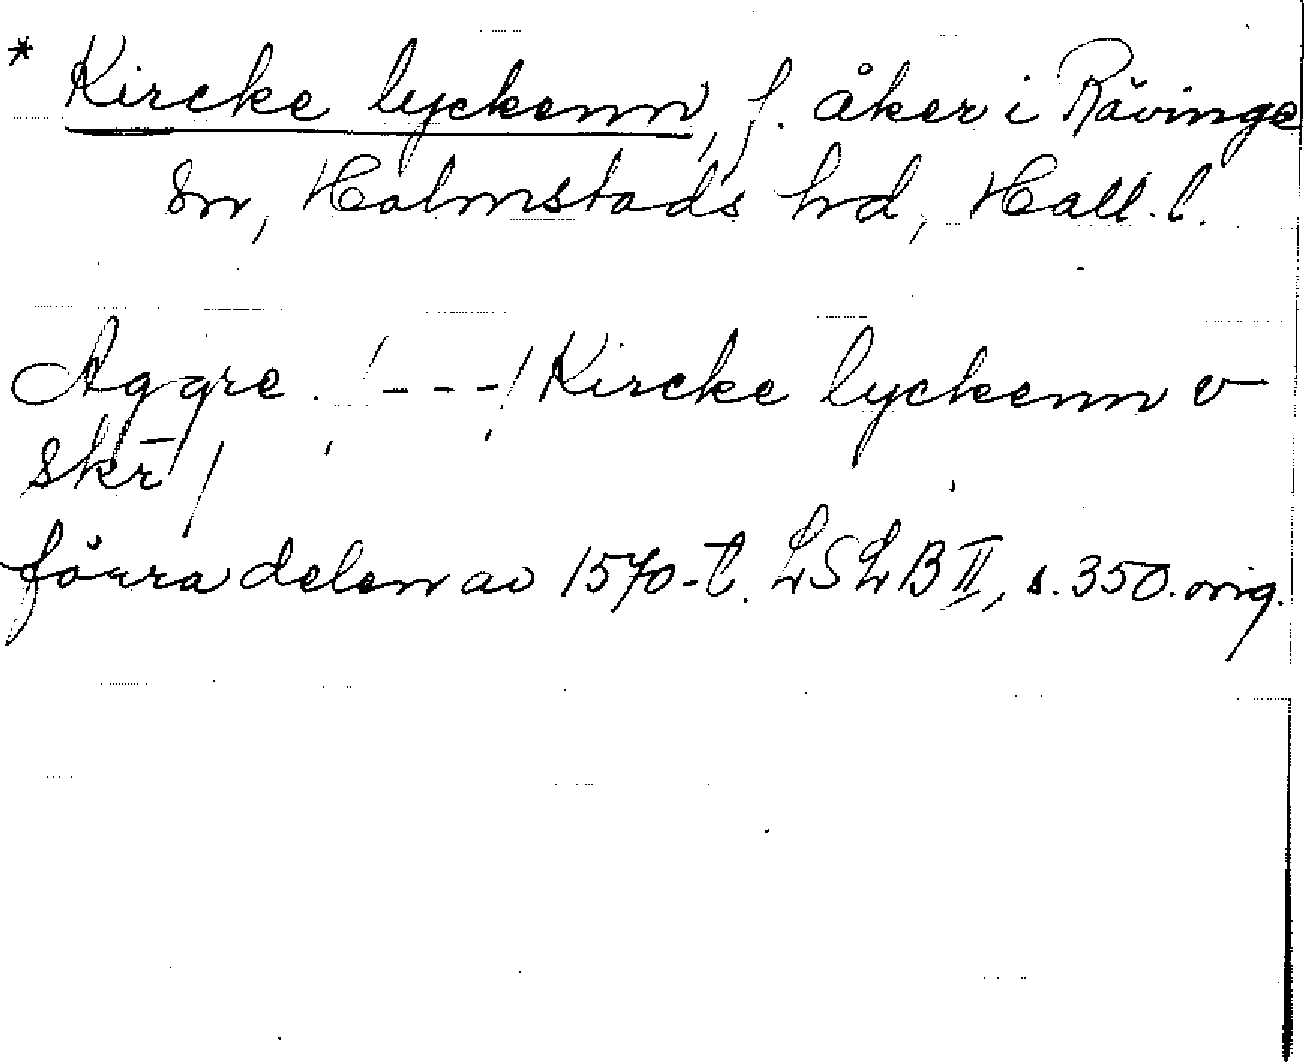 * Kircke lyckenn, f. åker i Rävinge
sn, Halmstads hrd, Hall. l.
Aggre. /---/ Kircke lyckenn v
skr̄ /
förra delen av 1570-t. LSLB II, s. 350. orig.